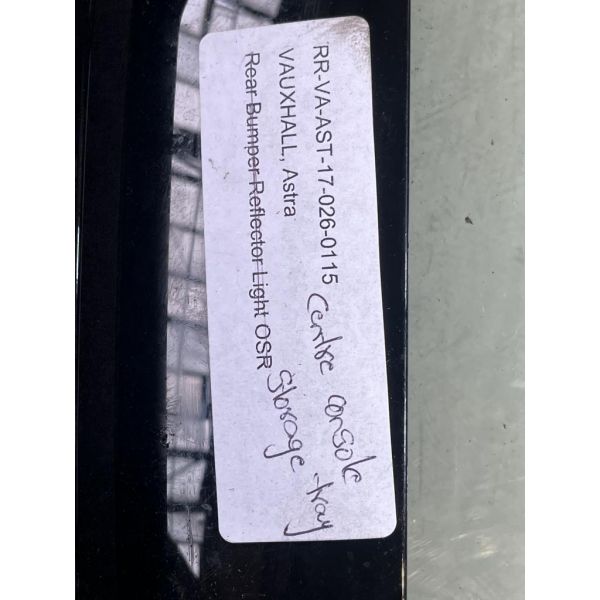 RR-VA-AST-17-026-0115
VAUXHALL, Astra
Rear Bumper Reflector Light OSR
Centre console
Storage tray